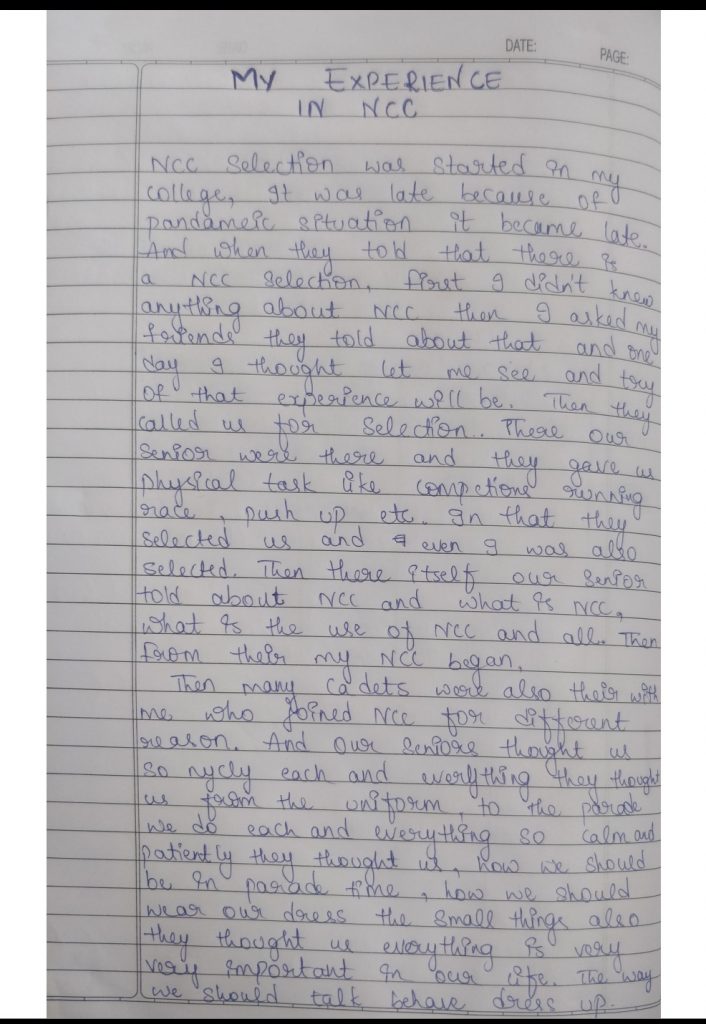 DATE:
PAGE:
MY EXPERIENCE
IN NCC
NCC Selection was started in my
college, It was late because of
pandameic situation it became late.
And when they told that there is
a NCC Selection, first I didn't knew
anything about NCC then I asked my
friends they told about that and one
day I thought let me see and try
of that experience will be. Then they
called us for Selection.. There our
Senior were there and they gave us
physical task like competions running
race, push up etc. In that they
Selected us and even I was also
Selected. Then there itself our Senior
told about NCC and what is NCC,
what is the use of NCC and all. Then
from their my NCC began.
Then many Cadets were also their with
me who joined NCC for different
reason. And our Seniors thought us
so nycly each and everything they thought
us from the uniform, to the parade
we do each and everything so calm and
patiently they thought us, how we should
be in parade time, how we should
wear our dress the small things also
they thought us everything is very
very important in our life. The way
we should talk behave dress up.